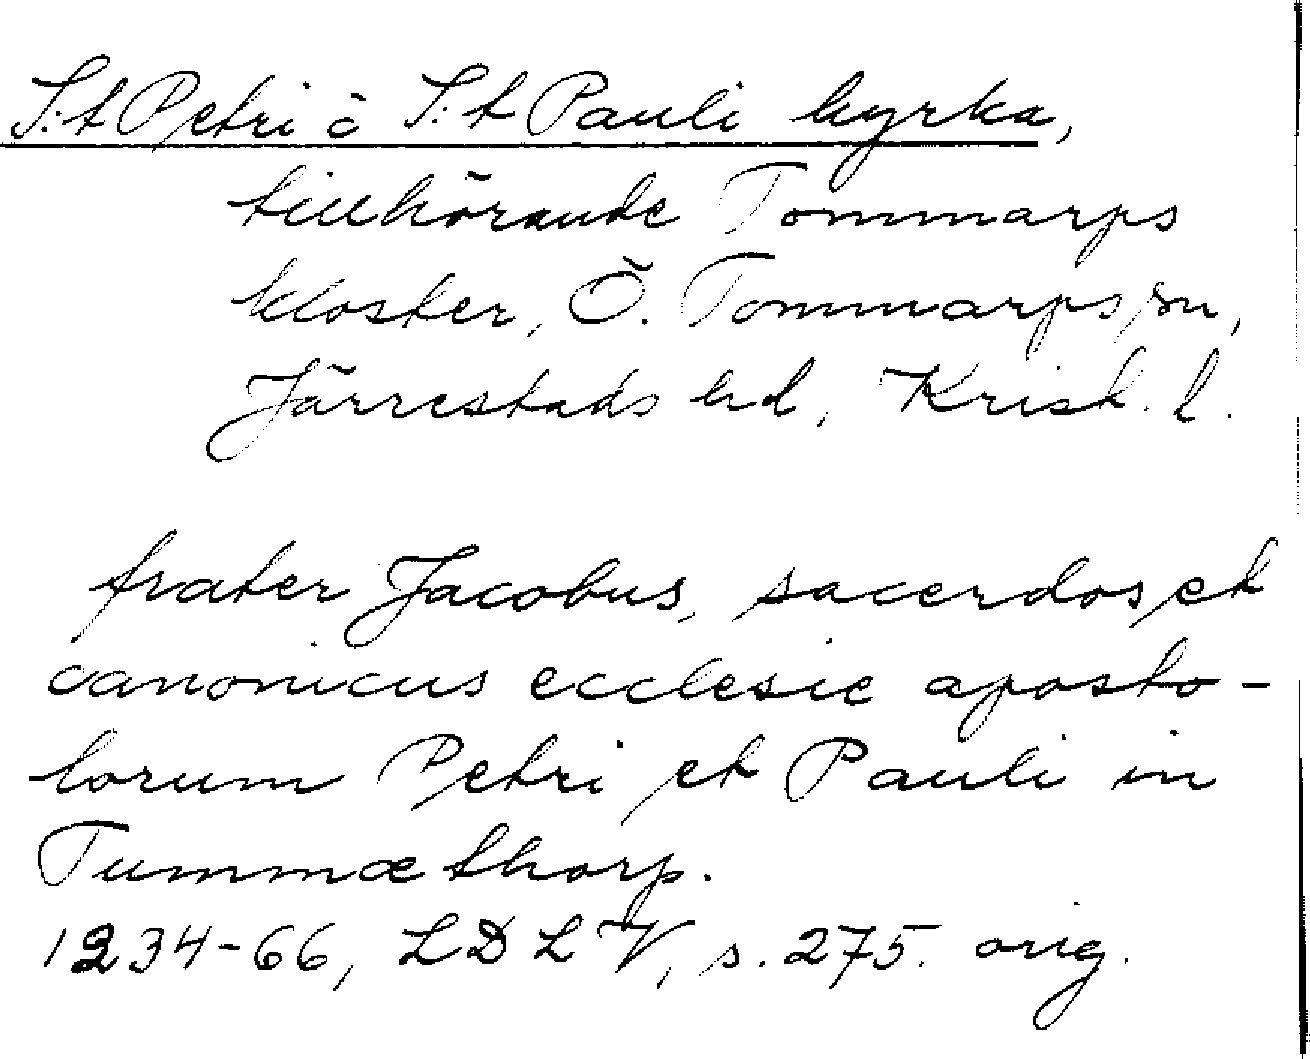 S:t Petri o S:t Pauli kyrka,
tillhörande Tommarps
kloster, Ö. Tommarps sn,
Järrestads hd, Krist. l.
frater Jacobus, sacerdos et
canonicus ecclesie aposto-
lorum Petri et Pauli in
Tummæthorp.
1234-66, LDLV, s. 275. orig.